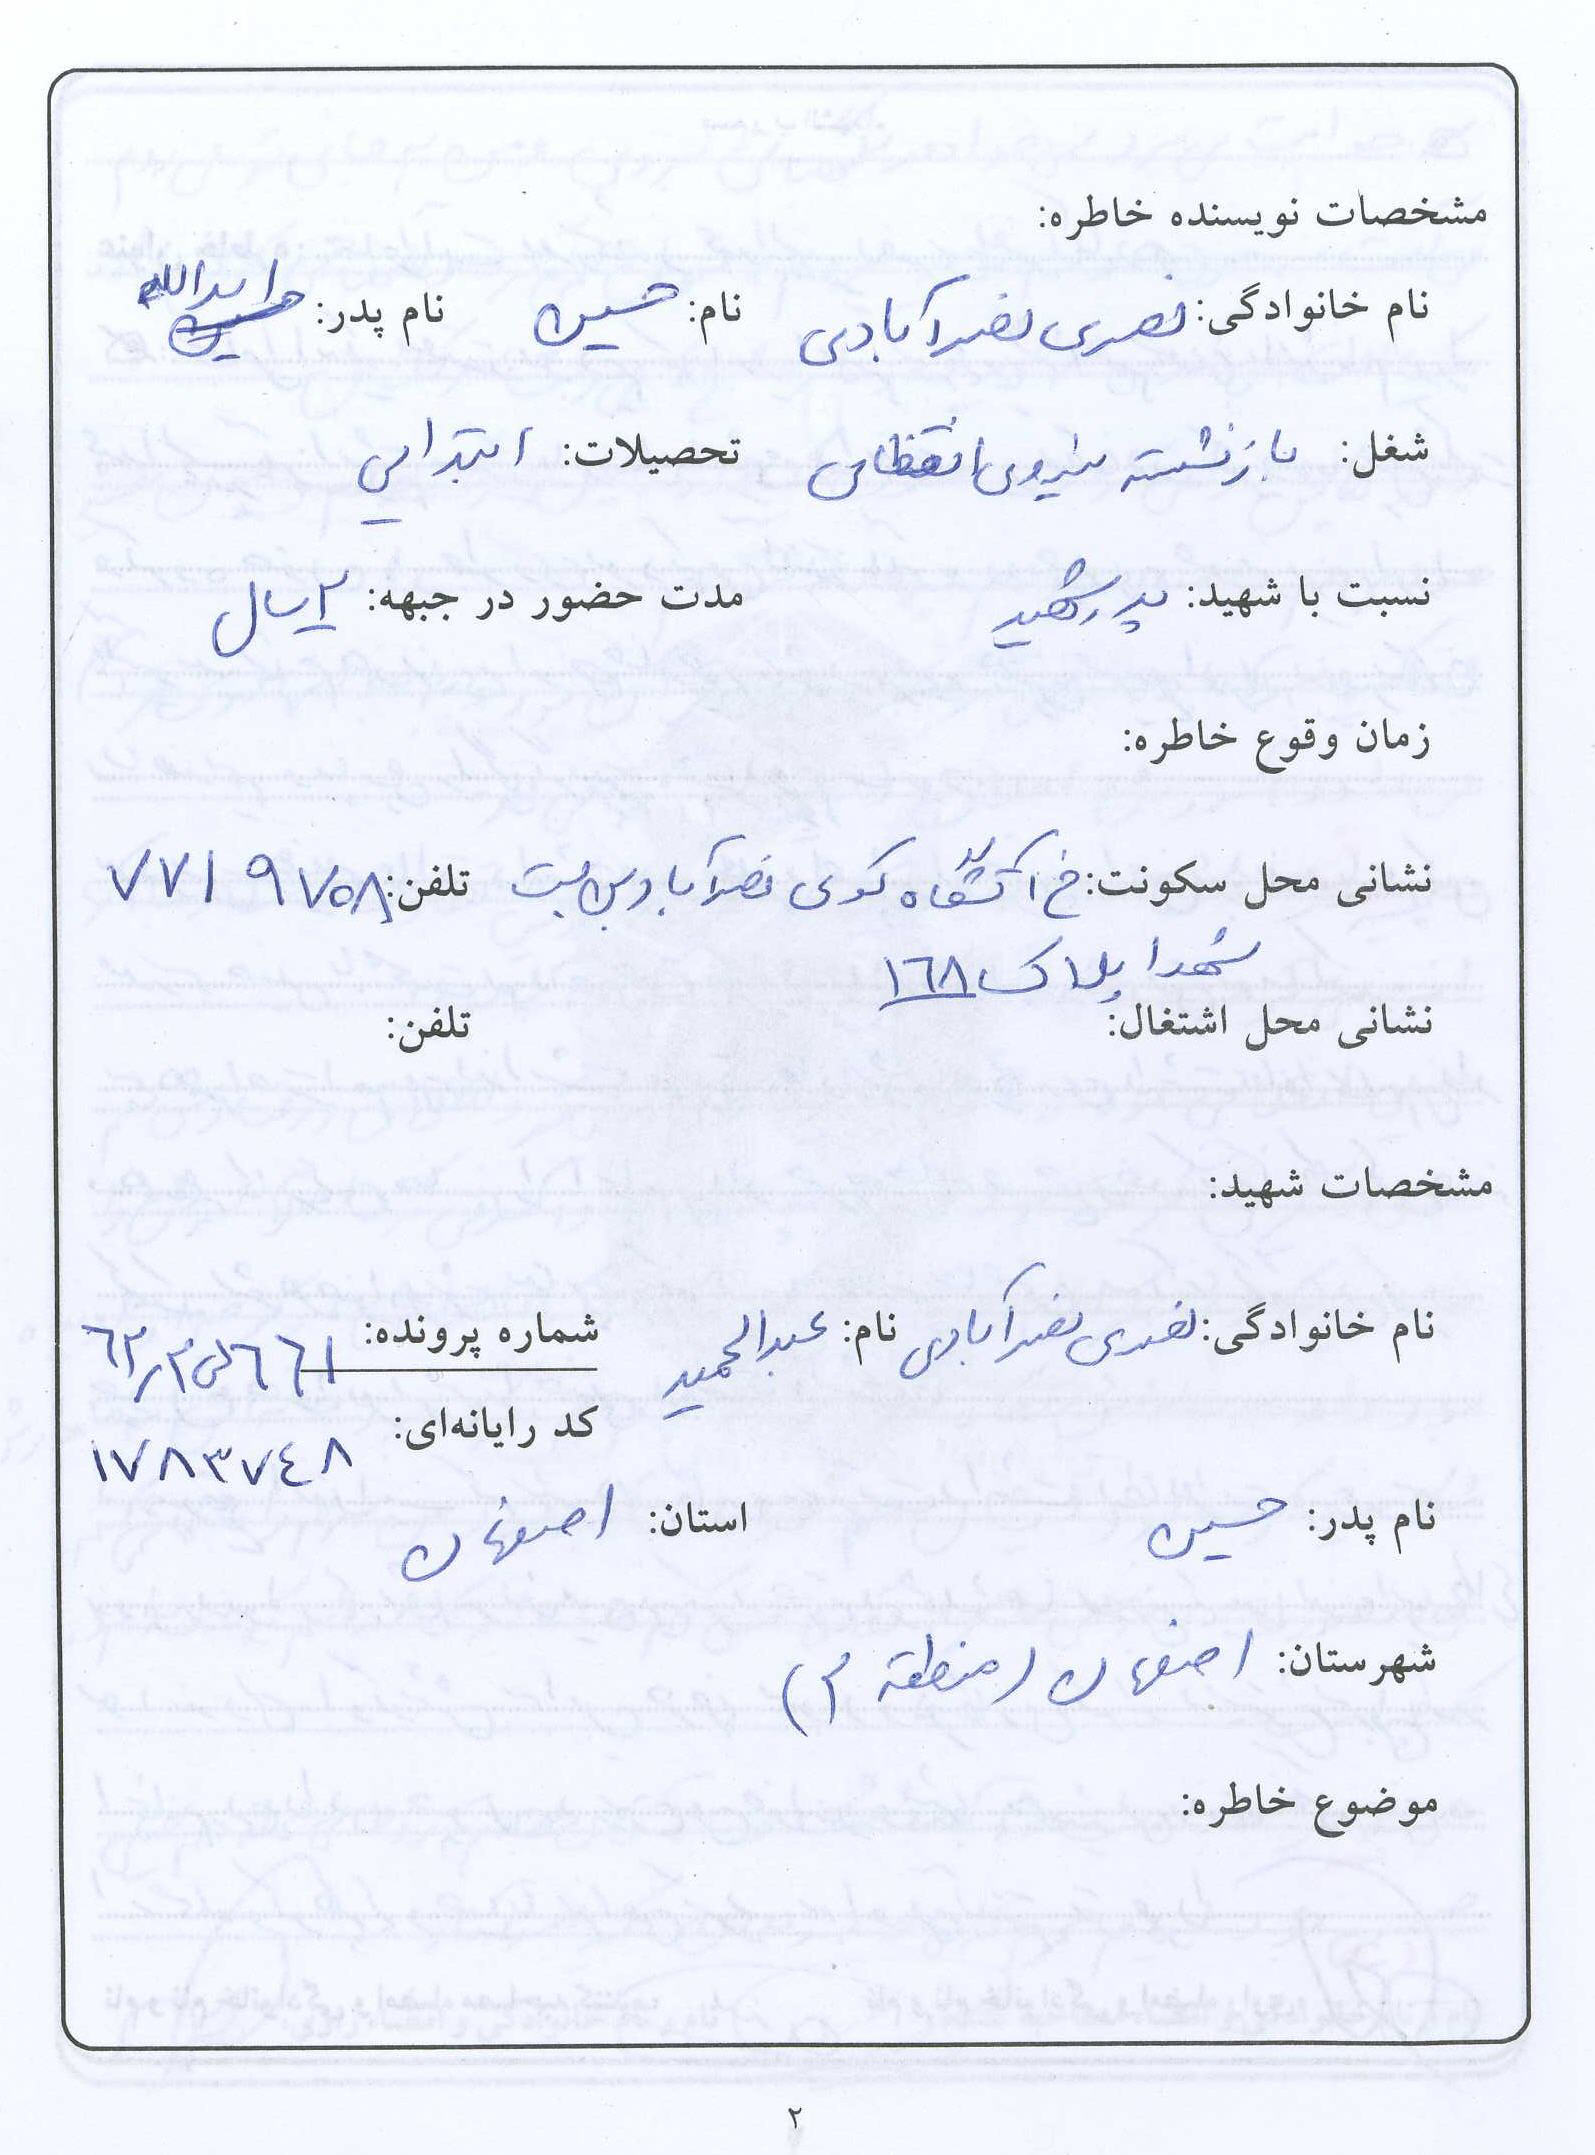 مشخصات نویسنده خاطره:
نام خانوادگی: نصری نصرآبادی نام: حسین نام پدر: یدالله
شغل: بازنشسته نیروی انتظامی تحصیلات: ابتدایی
نسبت با شهید: پدر شهید مدت حضور در جبهه: ۲ سال
زمان وقوع خاطره:
نشانی محل سکونت: خ آتشگاه کوی نصرآباد بن بست تلفن: ۷۷۱۹۷۵۸
شهدا پلاک ۱۶۸
نشانی محل اشتغال: تلفن:
مشخصات شهید:
نام خانوادگی: نصری نصرآبادی نام: عبدالحمید شماره پرونده:
کد رایانه‌ای: ۱۷۸۳۷۴۸
نام پدر: حسین استان: اصفهان
شهرستان: اصفهان (منطقه ۳)
موضوع خاطره:
۲